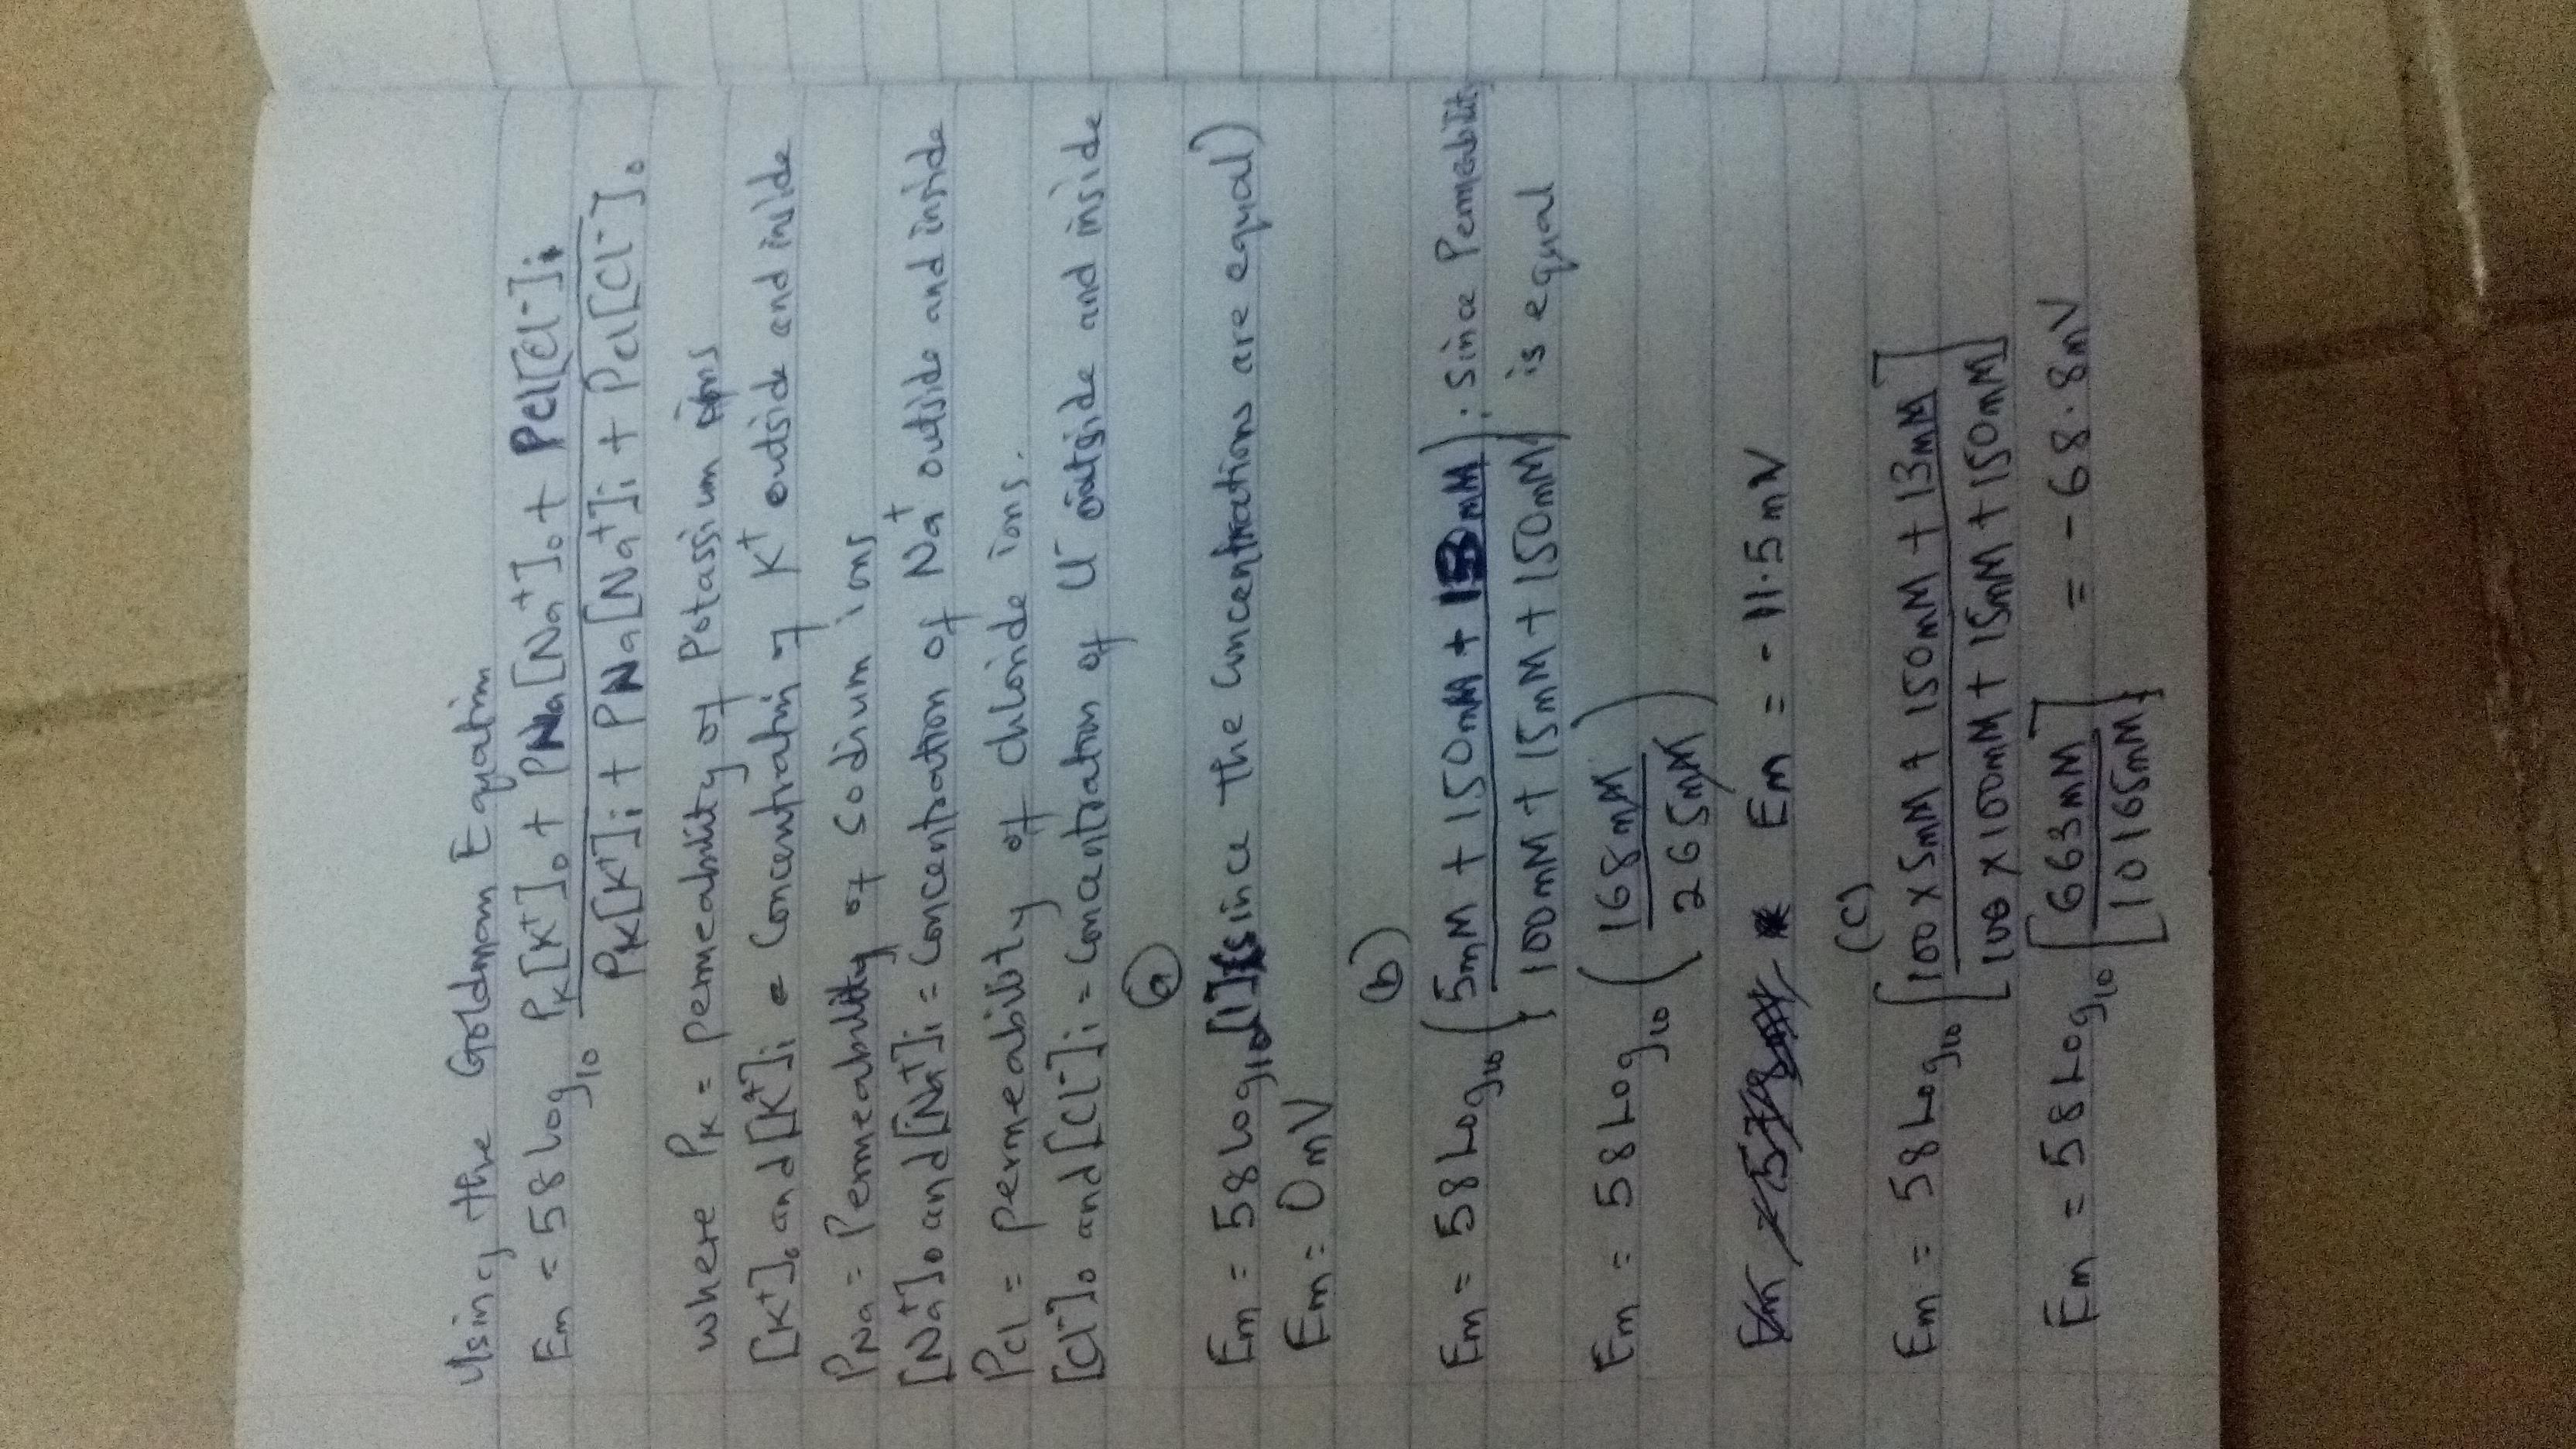 Using the Goldman Equation
Em = 58 Log10 PK[K+]o + PNa[Na+]o + PCl[Cl-]i
PK[K+]i + PNa[Na+]i + PCl[Cl-]o
where PK = permeability of Potassium ions
[K+]o and [K+]i = Concentration of K+ outside and inside
PNa = Permeability of sodium ions
[Na+]o and [Na+]i = Concentration of Na+ outside and inside
PCl = permeability of chloride ions.
[Cl-]o and [Cl-]i = Concentration of Cl- outside and inside
(a)
Em = 58 Log10 [1] (since the Concentrations are equal)
Em = 0mV
(b)
Em = 58 Log10 (5mM + 150mM + 13mM) ; since Permeability
(100mM + 15mM + 150mM) is equal
Em = 58 Log10 (168mM
265mM)
Em = -11.5mV
(c)
Em = 58 Log10 [100 x 5mM + 150mM + 13mM]
[100 x 100mM + 15mM + 150mM]
Em = 58 Log10 [663mM] = -68.8mV
[10165mM]